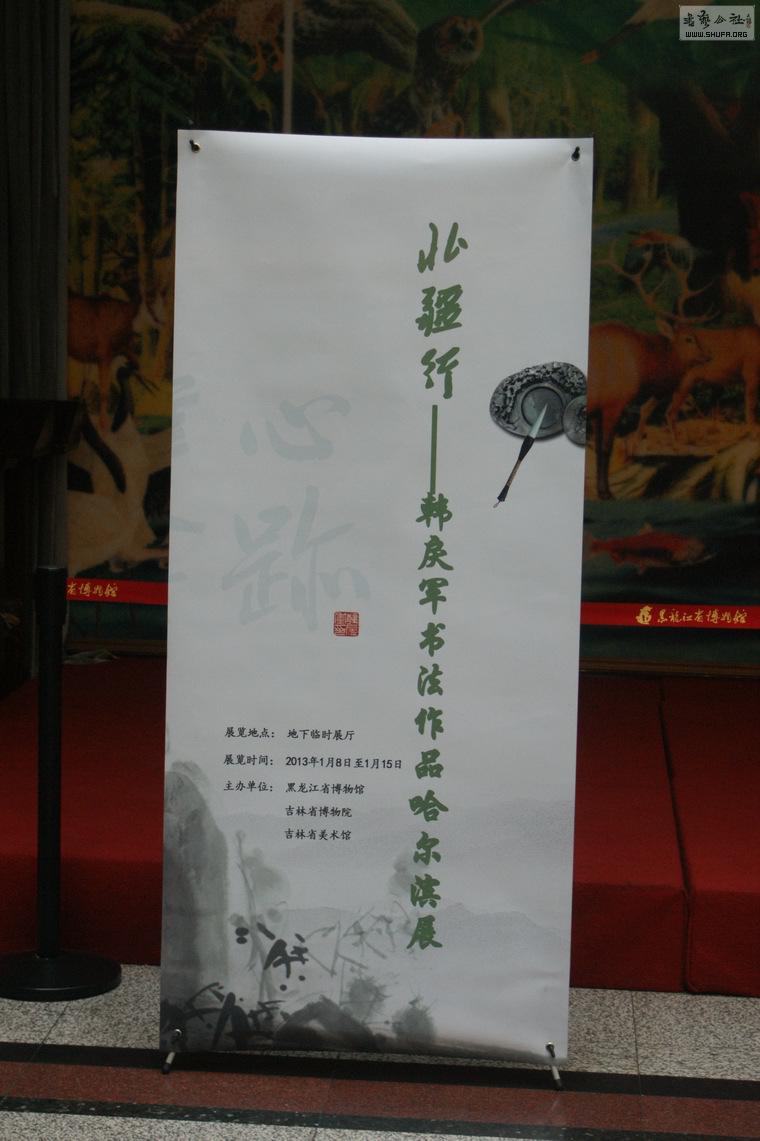 书艺公社
WWW.SHUFA.ORG
北疆行——韩戾军书法作品哈尔滨展
心迹
展览地点： 地下临时展厅
展览时间： 2013年1月8日至1月15日
主办单位： 黑龙江省博物馆
吉林省博物院
吉林省美术馆
省博物馆
黑龍江省博物館